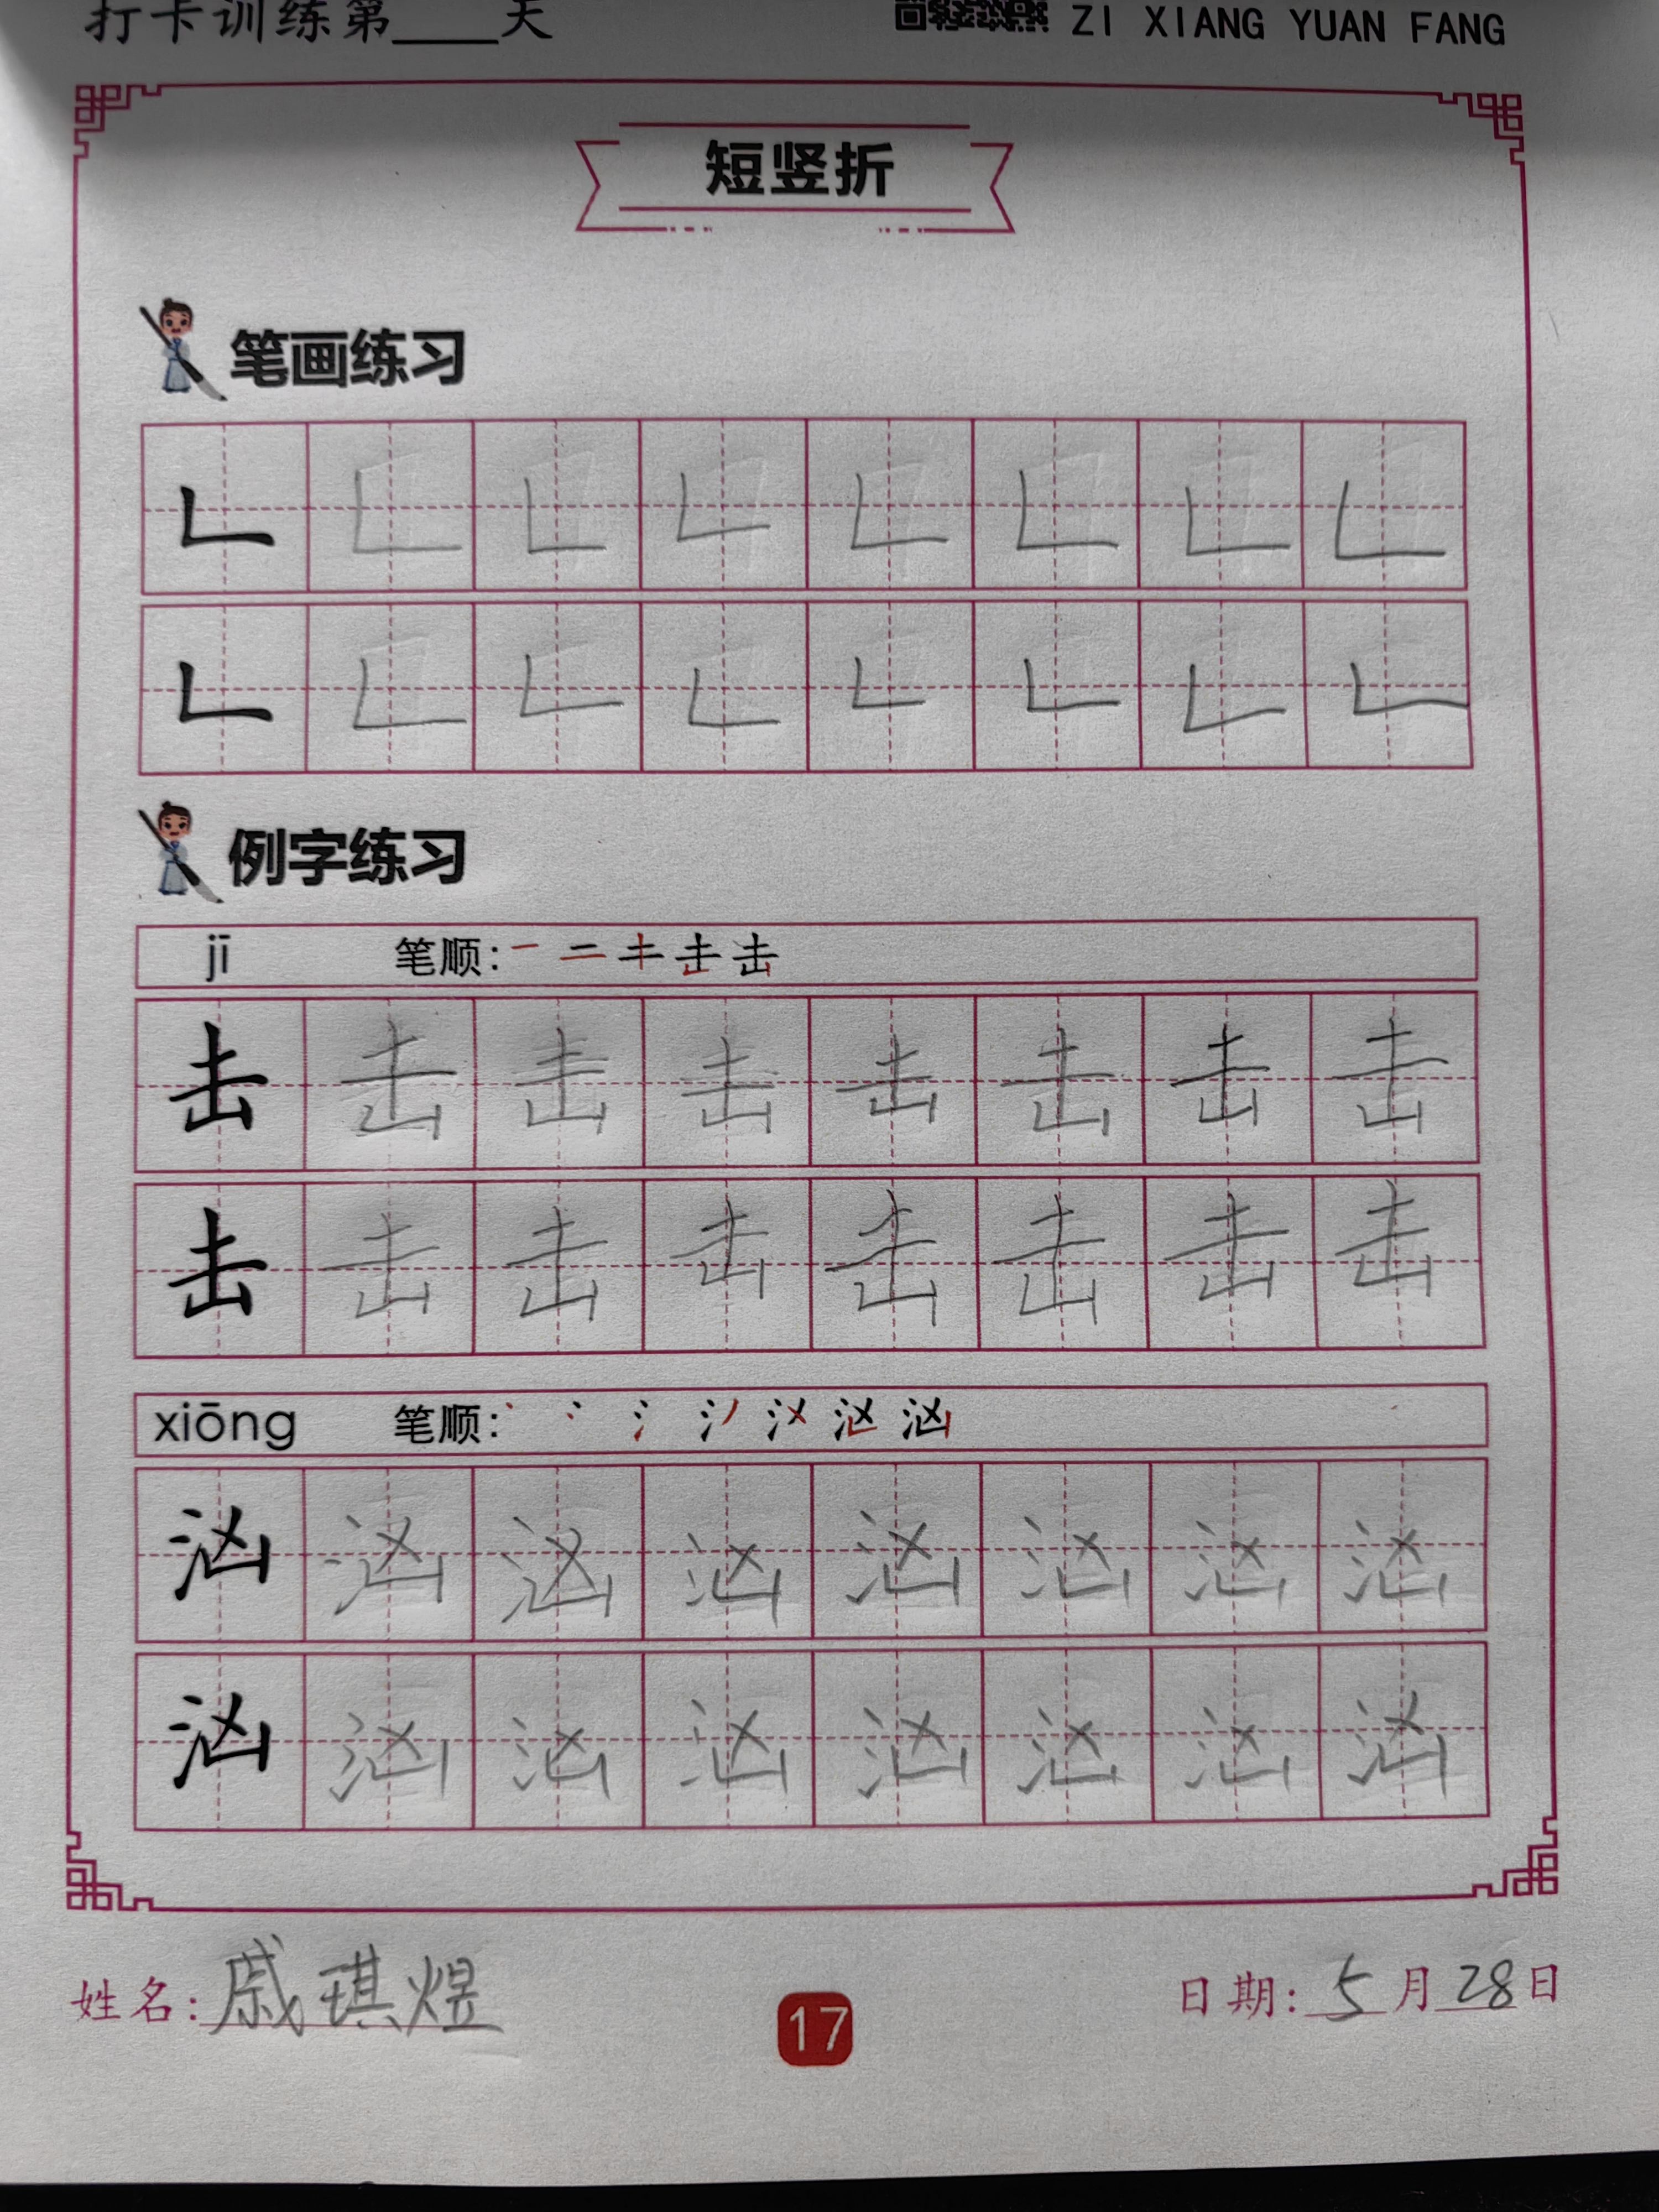 打卡训练第____天 ZI XIANG YUAN FANG
短竖折
笔画练习
𠃊 𠃊 𠃊 𠃊 𠃊 𠃊 𠃊 𠃊
𠃊 𠃊 𠃊 𠃊 𠃊 𠃊 𠃊 𠃊
例字练习
jī 笔顺: 一 二 キ 击 击
击 击 击 击 击 击 击 击
击 击 击 击 击 击 击 击
xiōng 笔顺:
汹 汹 汹 汹 汹 汹 汹 汹
汹 汹 汹 汹 汹 汹 汹 汹
姓名: 戚琪煜 17 日期: 5月28日